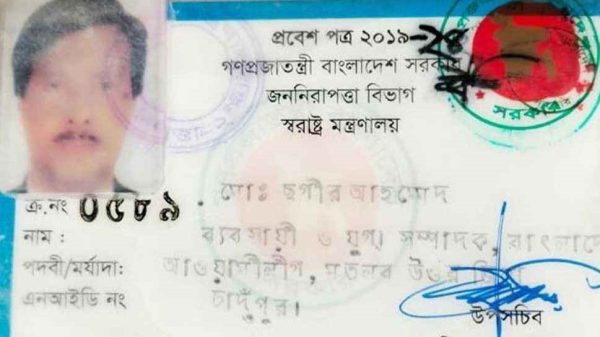 প্রবেশ পত্র ২০১৯-২০
গণপ্রজাতন্ত্রী বাংলাদেশ সরকার
জননিরাপত্তা বিভাগ
স্বরাষ্ট্র মন্ত্রণালয়
ক্র.নং ০৫৮৯ . মোঃ ছগীর আহম্মেদ
নাম : ব্যবসায়ী ও যুগ্ম সম্পাদক, বাংলাদেশ
পদবী/মর্যাদা: আওয়ামীলীগ, মতলব উত্তর
এনআইডি নং চাদঁপুর।
উপসচিব
সরকার